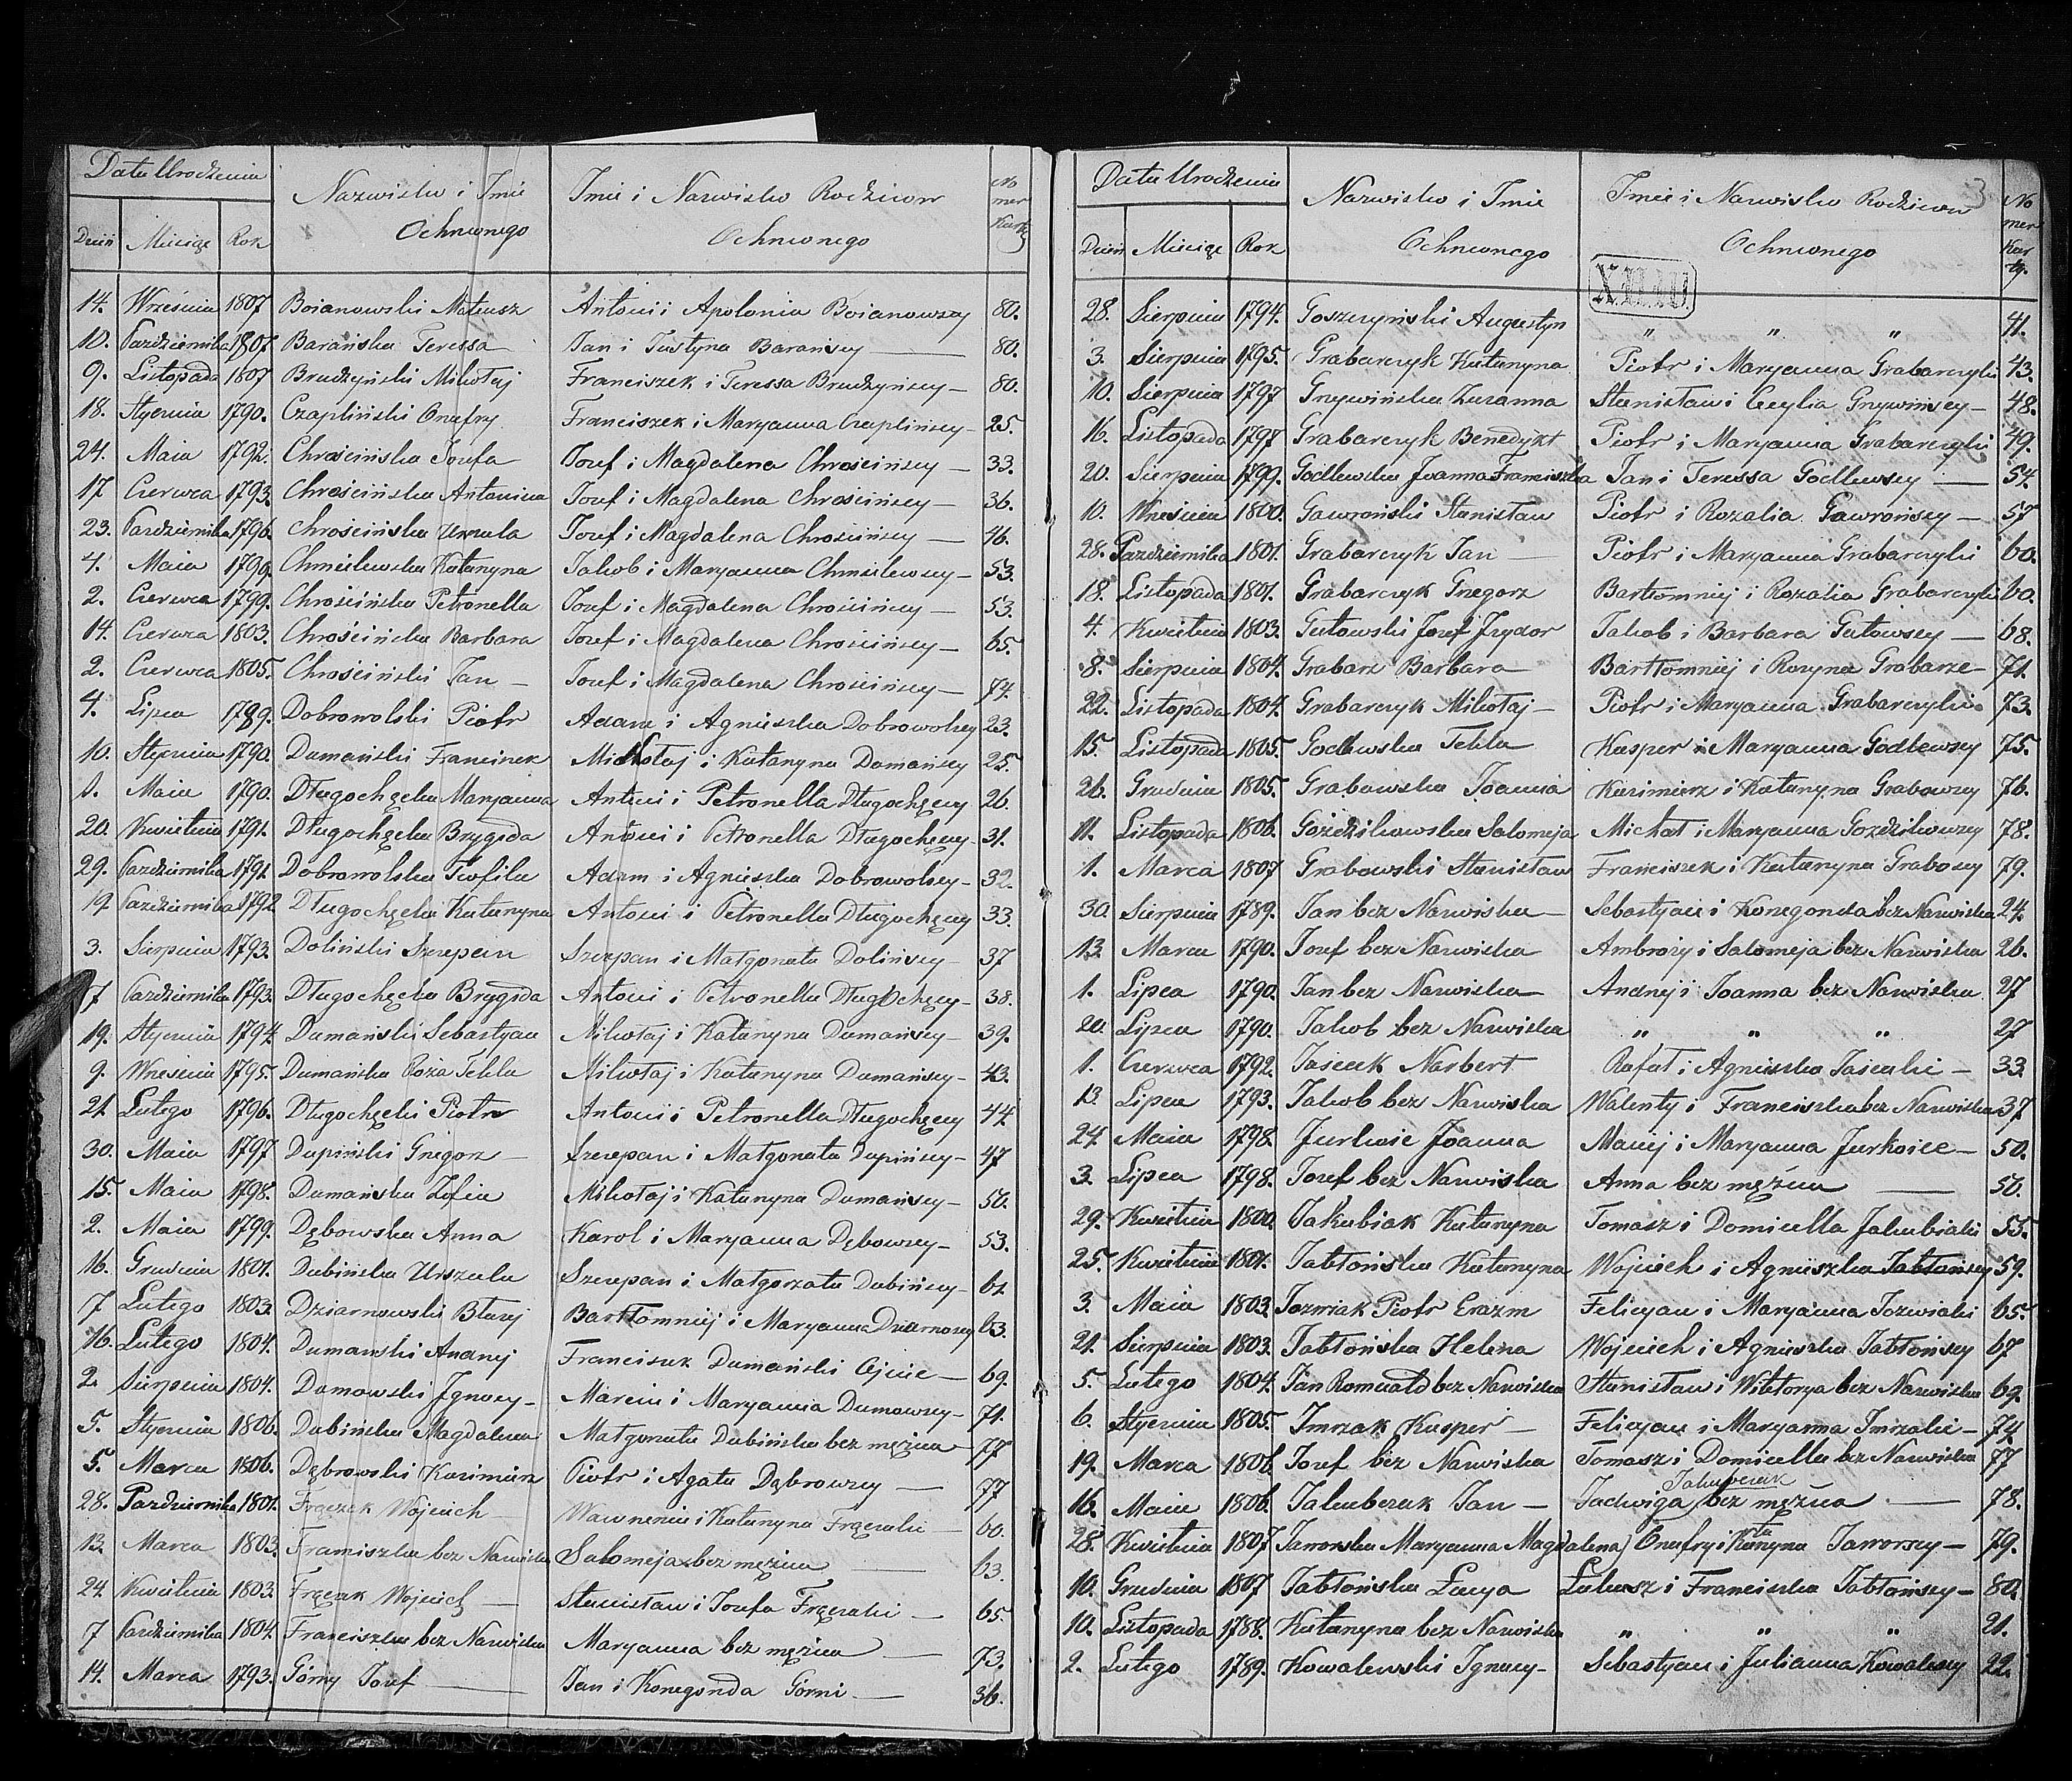 Data Urodzenia
Nazwisko i Imie Ochrzconego
Imie i Nazwisko Rodzicow Ochrzconego
Nomer Karty
Dzień Miesiąc Rok
14. Września 1807 Boianowski Mateusz Antoni i Apolonia Boianowscy 80.
10. Pazdziernika 1807. Barańska Teressa Jan i Justyna Barańscy — 80.
9. Listopada 1807 Brudzyński Mikołaj Franciszek i Teressa Brudzyńscy — 80.
18. Stycznia 1790. Czapliński Onufry Franciszek i Maryanna Czaplińscy — 25.
24. Maia 1792. Chrościńska Jozefa Jozef i Magdalena Chrościńscy — 33.
17 Czerwca 1793. Chrościńska Antonina Jozef i Magdalena Chrościńscy — 36.
23. Pazdziernika 1796. Chrościńska Urszula Jozef i Magdalena Chrościńscy — 46.
4. Maia 1799. Chmielewska Katarzyna Jakob i Maryanna Chmielewscy — 53.
2. Czerwca 1799. Chrościńska Petronella Jozef i Magdalena Chrościńscy — 53.
14. Czerwca 1803. Chrościńska Barbara Jozef i Magdalena Chrościńscy — 65.
2. Czerwca 1805. Chrościński Jan — Jozef i Magdalena Chrościńscy — 74.
4. Lipca 1789. Dobrowolski Piotr Adam i Agnieszka Dobrowolscy 23.
10. Stycznia 1790. Dumański Franciszek Mikołaj i Katarzyna Dumańscy 25.
1. Maia 1790. Długochęcka Maryanna Antoni i Petronella Długochęccy 26.
20. Kwietnia 1791. Długochęcka Brygida Antoni i Petronella Długochęccy 31.
29. Pazdziernika 1791. Dobrowolska Teofila Adam i Agnieszka Dobrowolscy — 32.
19 Pazdziernika 1792 Długochęcka Katarzyna Antoni i Petronella Długochęccy 33.
3. Sierpnia 1793. Doliński Szczepan Szczepan i Małgorzata Dolińscy — 37
7 Pazdziernika 1793. Długochęcka Brygida Antoni i Petronella Długochęccy — 38.
19. Stycznia 1794. Dumański Sebastyan Mikołaj i Katarzyna Dumańscy — 39.
9. Września 1795. Dumańska Roża Tekla Mikołaj i Katarzyna Dumańscy — 43.
21. Lutego 1796. Długochęcki Piotr Antoni i Petronella Długochęccy 44.
30. Maia 1797 Dupiński Grzegorz — Szczepan i Małgorzata Dupińscy — 47
15. Maia 1798. Dumańska Zofia Mikołaj i Katarzyna Dumańscy — 50.
2. Maia 1799. Dębowska Anna Karol i Maryanna Dębowscy — 53.
16. Grudnia 1801. Dubińska Urszula Szczepan i Małgorzata Dubińscy — 61.
7 Lutego 1803. Dziarnowski Błazej Bartłomniej i Maryanna Dziarnoscy 63.
16. Lutego 1804. Dumanski Andrzej Franciszek Dumański Ojciec — 69.
2. Sierpnia 1804. Dumowski Jgnacy — Marcin i Maryanna Dumowscy — 71.
5. Stycznia 1806. Dubińska Magdalena Małgorzata Dubińska bez mężna — 77
5. Marca 1806. Dąbrowski Kazimierz Piotr i Agata Dąbrowscy — 77
28. Pazdziernika 1801. Frączek Wojciech Wawrzeniec i Katarzyna Frączaki — 60.
13. Marca 1803. Franciszka bez Nazwiska Salomeja bez mężna — 63.
24. Kwietnia 1803. Frączak Wojciech — Stanisław i Jozefa Frączaki — 65
7 Pazdziernika 1804. Franciszka bez Nazwiska Maryanna bez mężna — 73.
14. Marca 1793. Górny Jozef — Jan i Konegonda Górni — 36.
3
Data Urodzenia
Nazwisko i Imie Ochrzconego
Imie i Nazwisko Rodzicow Ochrzconego
Nomer Karty.
Dzień Miesiąc Rok
28. Sierpnia 1794. Goszczyński Augustyn " " " 41.
3. Sierpnia 1795. Grabarczyk Katarzyna Piotr i Maryanna Grabarczyki 43.
10. Sierpnia 1797 Grzywińska Zuzanna Stanisław i Cecylia Grzywińscy — 48.
16. Listopada 1797 Grabarczyk Benedykt Piotr i Maryanna Grabarczyki 49.
20. Sierpnia 1799. Godlewska Joanna Franciszka Jan i Teressa Godlewscy — 54.
10. Września 1800. Gawroński Stanisław Piotr i Rozalia Gawrońscy — 57
28. Pazdziernika 1801. Grabarczyk Jan — Piotr i Maryanna Grabarczyki 60.
18. Listopada 1801. Grabarczyk Grzegorz Bartłomniej i Rozalia Grabarczyki 60.
4. Kwietnia 1803. Gutowski Jozef Jzydor Jakob i Barbara Gutowscy — 68.
8. Sierpnia 1804. Grabarz Barbara Bartłomniej i Rozyna Grabarze — 71.
22. Listopada 1804. Grabarczyk Mikołaj — Piotr i Maryanna Grabarczyki 73.
15. Listopada 1805. Godlewska Tekla Kasper i Maryanna Godlewscy 75.
26. Grudnia 1805. Grabowska Joanna Kazimierz i Katarzyna Grabowscy 76.
11. Listopada 1806. Goździkowska Salomeja Michał i Maryanna Gozdzikowscy 78.
1. Marca 1807 Grabowski Stanisław Franciszek i Katarzyna Graboscy 79.
30. Sierpnia 1789. Jan bez Nazwiska — Sebastyan i Konegonda bez Nazwiska 24.
13. Marca 1790. Jozef bez Nazwiska Ambroży i Salomeja bez Nazwiska 26.
1. Lipca 1790. Jan bez Nazwiska — Andrzej i Joanna bez Nazwiska 27
20. Lipca 1790. Jakob bez Nazwiska " " " 27
1. Czerwca 1792. Jasieek Norbert Rafał i Agnieszka Jasieaki — 33.
13. Lipca 1793. Jakob bez Nazwiska Walenty i Franciszka bez Nazwiska 37
24. Maia 1798. Jurkoic Joanna Maciej i Maryanna Jurkoice — 50.
3. Lipca 1798. Jozef bez Nazwiska Anna bez mężna — 50.
29. Kwietnia 1800. Jakubiak Katarzyna Tomasz i Domicella Jakubiaki 55.
25. Kwietnia 1801. Jabłońska Katarzyna Wojciech i Agnieszka Jabłonscy 59.
3. Maia 1803. Jozwiak Piotr Erazm Felicyan i Maryanna Jozwiaki 65.
21. Sierpnia 1803. Jabłońska Helena Wojciech i Agnieszka Jabłońscy 67
5. Lutego 1804. Jan Romuald bez Nazwiska Stanisław i Wiktorya bez Nazwiska 69.
6. Stycznia 1805. Jmrzak Kasper — Felicyan i Maryanna Jmrzaki — 74.
19. Marca 1806. Jozef bez Nazwiska Tomasz i Domicella bez Nazwiska 77
16. Maia 1806. Jakubczak Jan — Jadwiga Jakubczak bez mężna — 78.
28. Kwietnia 1807 Jaworska Maryanna Magdalena) Onufry i Katarzyna Jaworscy — 79.
10. Grudnia 1807 Jabłońska Łucya Łukasz i Franciszka Jabłońscy — 80.
10. Listopada 1788. Katarzyna bez Nazwiska " " " 21.
2. Lutego 1789. Kowalewski Jgnacy — Sebastyan i Julianna Kowalescy 22.